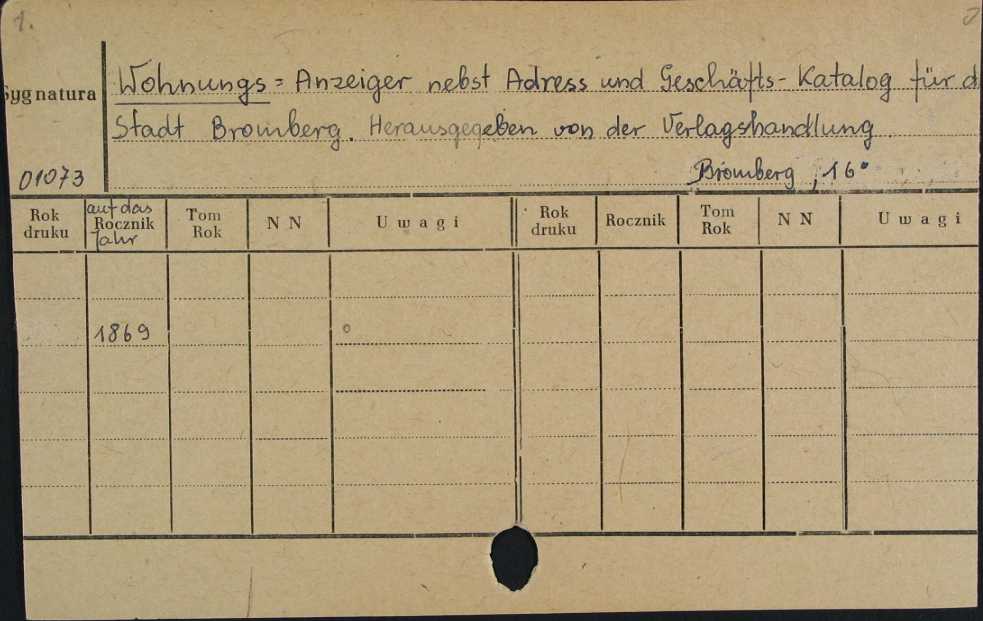 1.
Sygnatura
Wohnungs = Anzeiger nebst Adress und Geschäfts - Katalog für d
Stadt Bromberg. Herausgegeben von der Verlagshandlung
01073
Bromberg, 16°
Rok druku
auf das Rocznik Jahr
Tom Rok
NN
Uwagi
Rok druku
Rocznik
Tom Rok
NN
Uwagi
1869